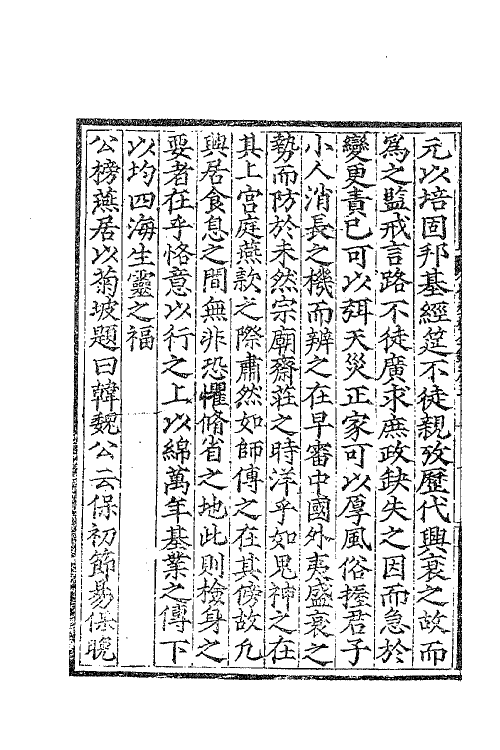 元以培固邦基經筵不徒親攷歷代興衰之故而
爲之監戒言路不徒廣求庶政缺失之因而急於
變更責已可以弭天災正家可以厚風俗握君子
小人消長之機而辨之在早審中國外夷盛衰之
勢而防於未然宗廟齋莊之時洋乎如鬼神之在
其上宮庭燕款之際肅然如師傅之在其傍故凢
興居食息之間無非恐懼脩省之地此則檢身之
要者在乎恪意以行之上以綿萬年基業之傳下
以均四海生靈之福
公榜燕居以菊坡題曰韓魏公云保初節易保晚